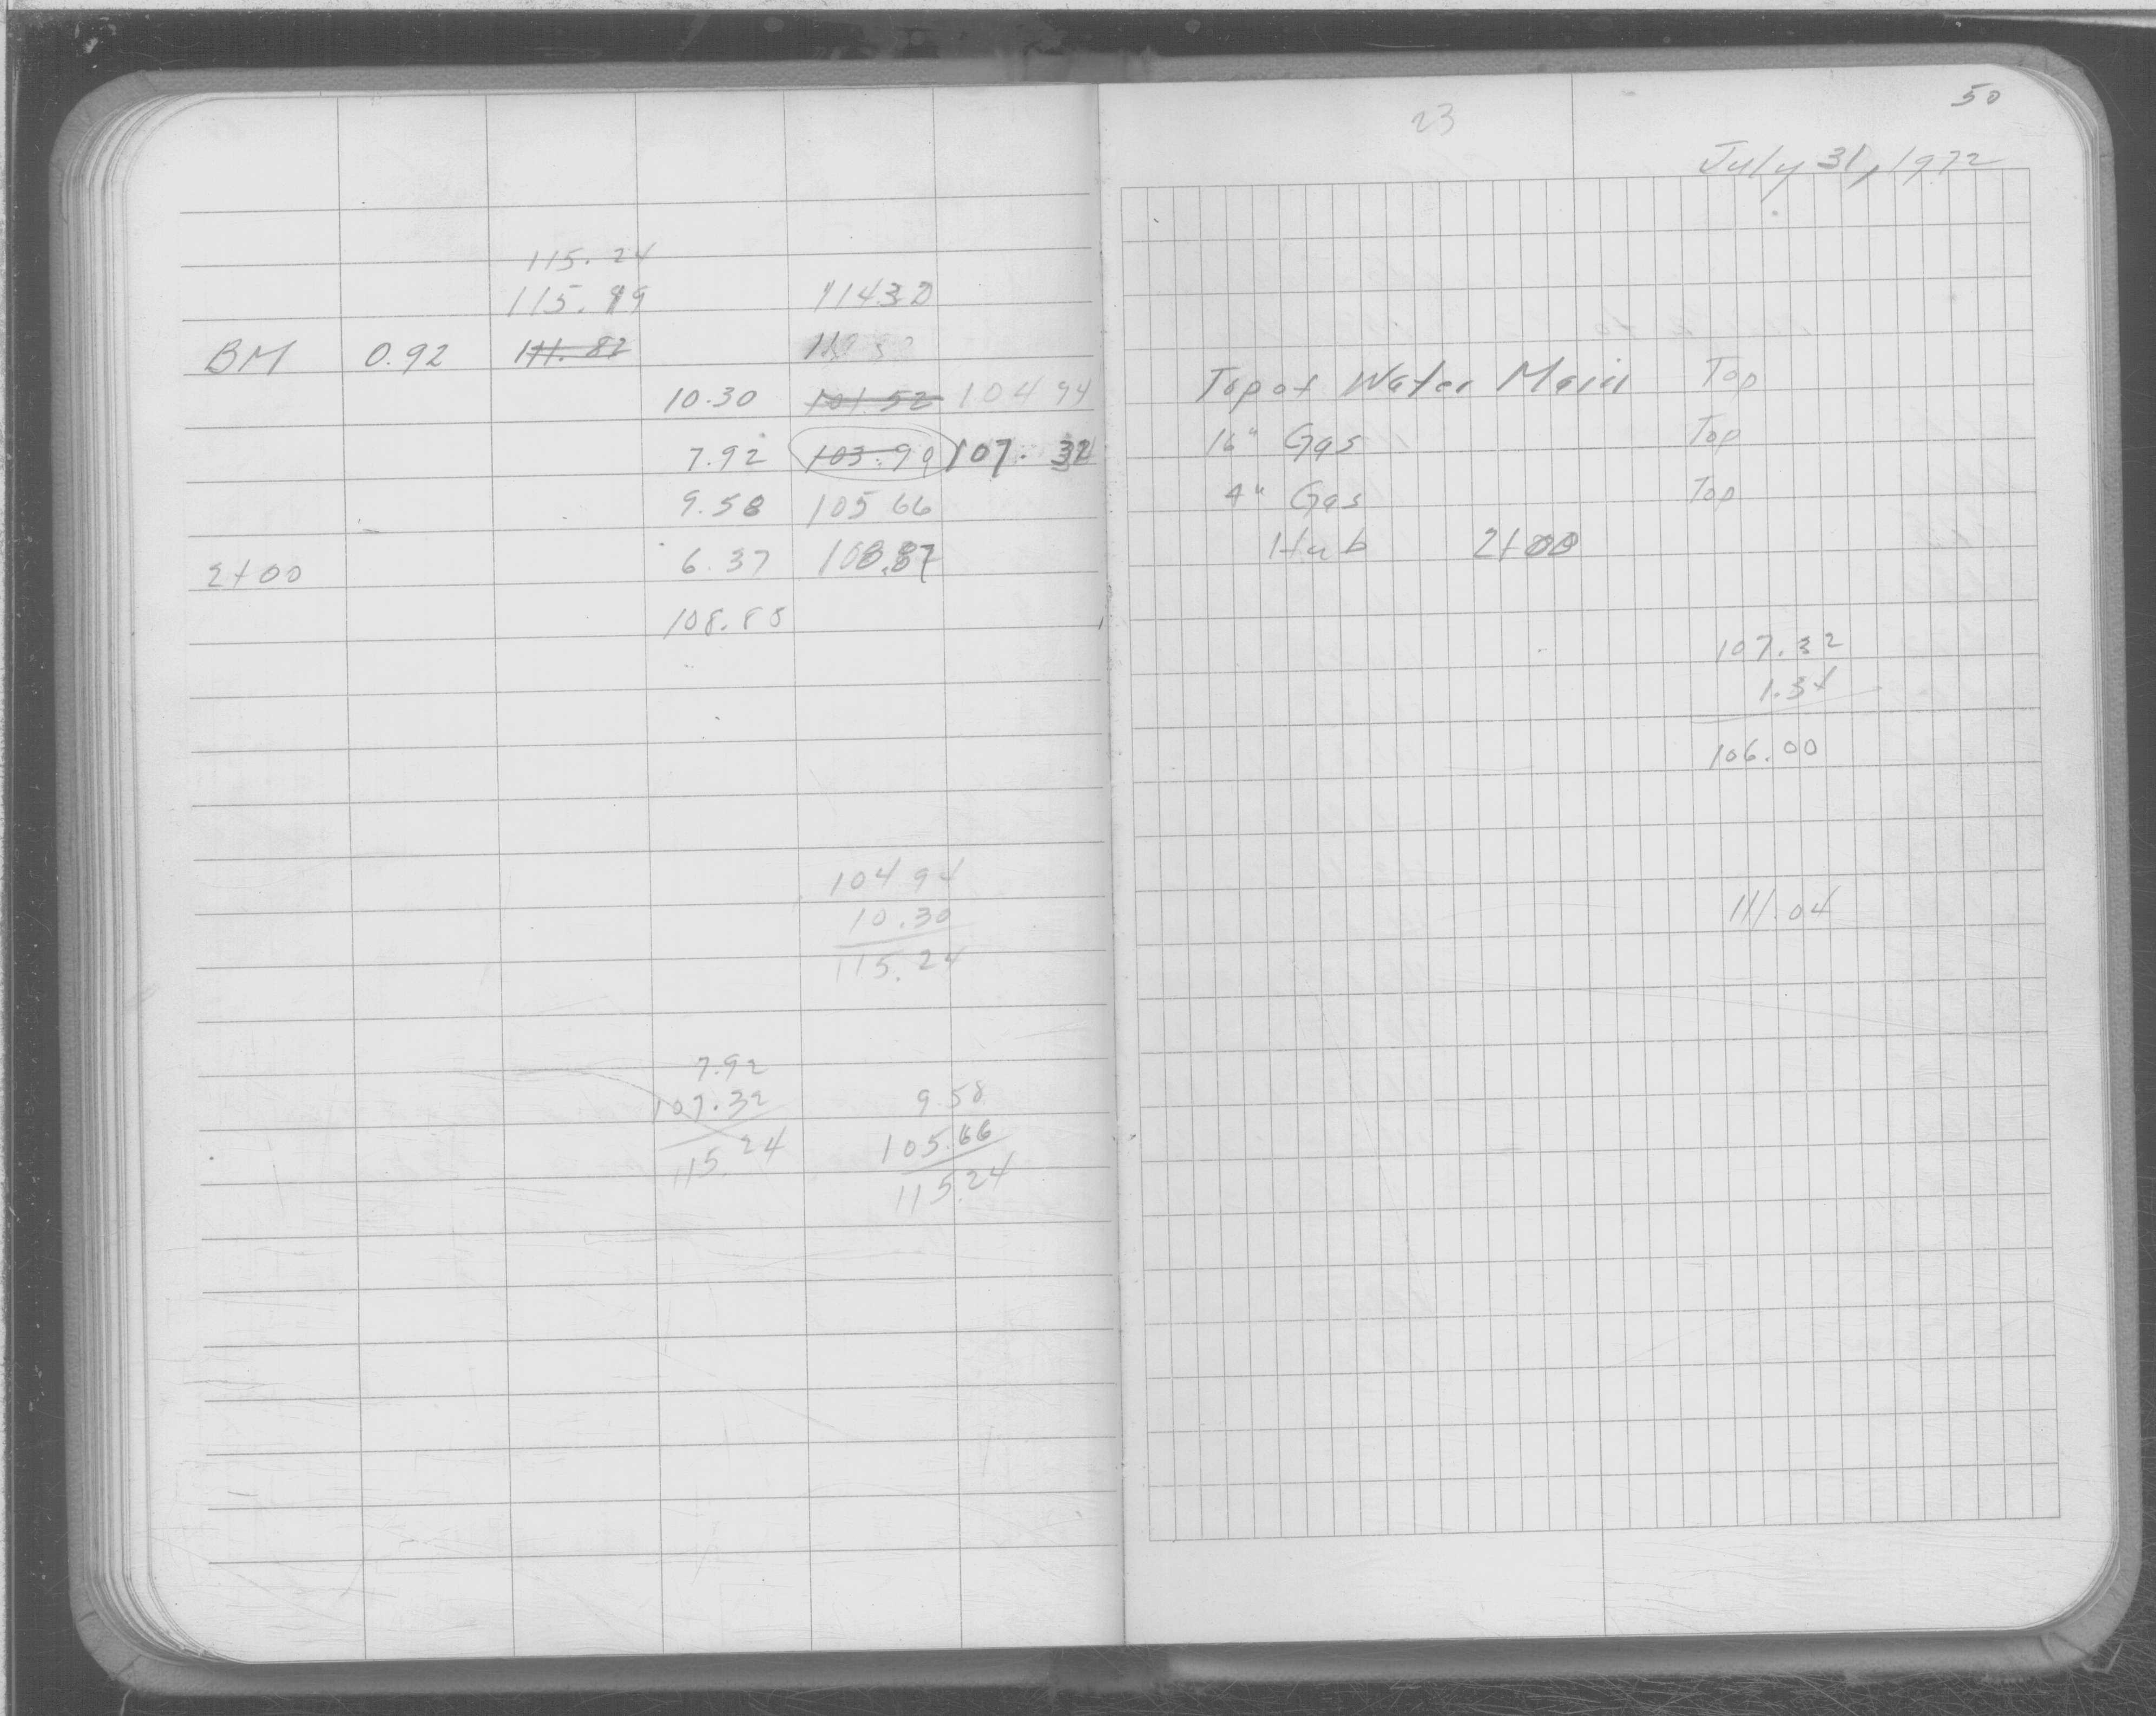 50
23
July 31, 1972
115.24
115.19 11432
BM 0.92 111.82
10.30 101 52 104 94 Top of Water Main Top
7.92 103.90 107.32 16" Gas Top
9.58 105 66 4" Gas Top
2+00 6.37 108.87 Hub 2+00
108.88
107.32
1.3
106.00
104 94
10.30
115.24
111.04
7.92
107.32
115.24
9.58
105.66
115.24